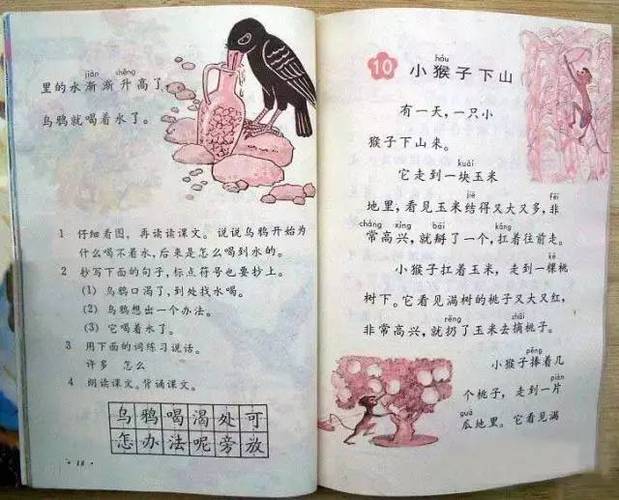 jiàn shēng
里的水渐渐升高了，
乌鸦就喝着水了。
1 仔细看图，再读读课文。说说乌鸦开始为
什么喝不着水，后来是怎么喝到水的。
2 抄写下面的句子，标点符号也要抄上。
(1) 乌鸦口渴了，到处找水喝。
(2) 乌鸦想出一个办法。
(3) 它喝着水了。
3 用下面的词练习说话。
许多 怎么
4 朗读课文。背诵课文。
乌鸦喝渴处可
怎办法呢旁放
hóu
10 小猴子下山
有一天，一只小
猴子下山来。
kuài
它走到一块玉米
jiē fēi
地里，看见玉米结得又大又多，非
cháng xìng bāi káng
常高兴，就掰了一个，扛着往前走。
kē
小猴子扛着玉米，走到一棵桃
树下。它看见满树的桃子又大又红，
rēng zhāi
非常高兴，就扔了玉米去摘桃子。
pěng
小猴子捧着几
piàn
个桃子，走到一片
guā
瓜地里。它看见满